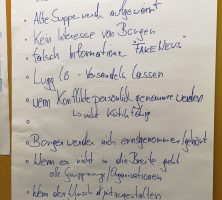 • Alte Suppe neu aufgewärmt
• Kein Interesse von Bürgern
• falsch Informationen FAKE NEWS
• versanden lassen
• wenn Konflikte persönlich genommen werden
↳ nicht kritikfähig
• Bürger werden nicht ernstgenommen/gehört
• Wenn es nicht in die Breite geht
alle Gruppierung/Organisationen
• Wenn der Wunsch mitzugestalten